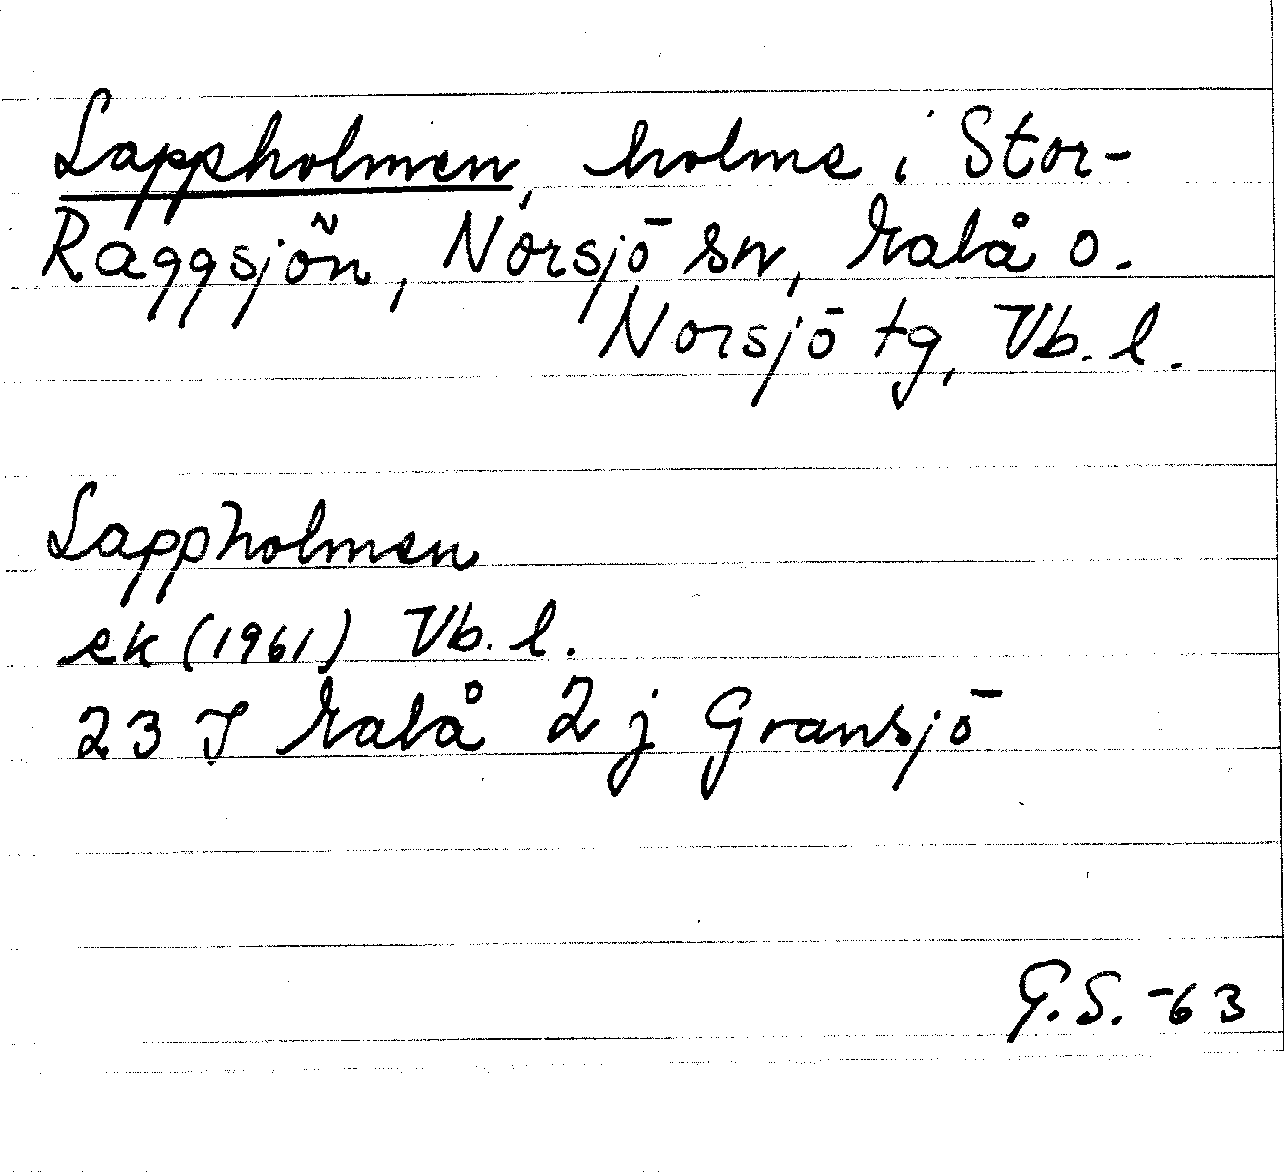 Lappholmen, holme i Stor-
Raggsjön, Norsjö sn, Malå o.
Norsjö tg, Vb. l.
Lappholmen
ek (1961) Vb. l.
23 J Malå 2 j Gransjö
G.S. -63